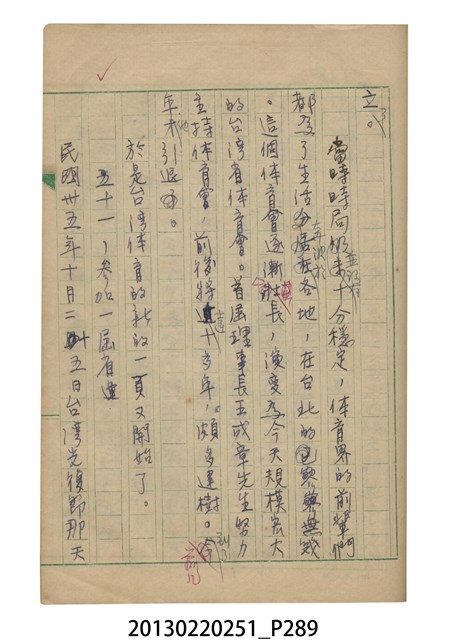 立。
當時時局仍未十分穩定，体育界的前輩們
都為了生活分居在各地，在台北的寥寥無幾
。這個体育會逐漸壯長，演変為今天規模宏大
的台湾省体育會。首屆理事長王成章先生努力
主持体育會，前後將近十多年，頗多建樹。今
年才引退。
於是台湾体育的新的一頁又開始了。
五十一，参加一屆省運
民國卅五年十月二十五日台湾光復節那天
20130220251_P289